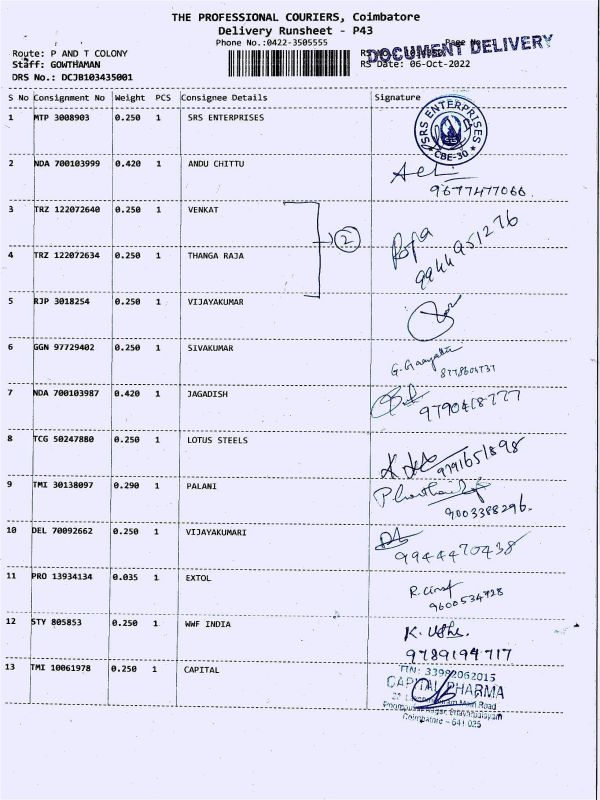 THE PROFESSIONAL COURIERS, Coimbatore
Delivery Runsheet - P43
Phone No.:0422-3505555
DOCUMENT DELIVERY
Route: P AND T COLONY
Staff: GOWTHAMAN
RS Date: 06-Oct-2022
DRS No.: DCJB103435001
S No Consignment No Weight PCS Consignee Details Signature
1 MTP 3008903 0.250 1 SRS ENTERPRISES
SRS ENTERPRISES
CBE-30
2 NDA 700103999 0.420 1 ANDU CHITTU
9677477066
3 TRZ 122072640 0.250 1 VENKAT
2
4 TRZ 122072634 0.250 1 THANGA RAJA
Roja
9944951276
5 RJP 3018254 0.250 1 VIJAYAKUMAR
6 GGN 97729402 0.250 1 SIVAKUMAR
7 NDA 700103987 0.420 1 JAGADISH
9790418777
8 TCG 50247880 0.250 1 LOTUS STEELS
9791651898
9 TMI 30138097 0.290 1 PALANI
9003388296.
10 DEL 70092662 0.250 1 VIJAYAKUMARI
9944470438
11 PRO 13934134 0.035 1 EXTOL
9600534728
12 STY 805853 0.250 1 WWF INDIA
K. Usha.
9789194717
13 TMI 10061978 0.250 1 CAPITAL
TIN: 33982062015
CAPITAL PHARMA
Main Road
Coimbatore - 641 025